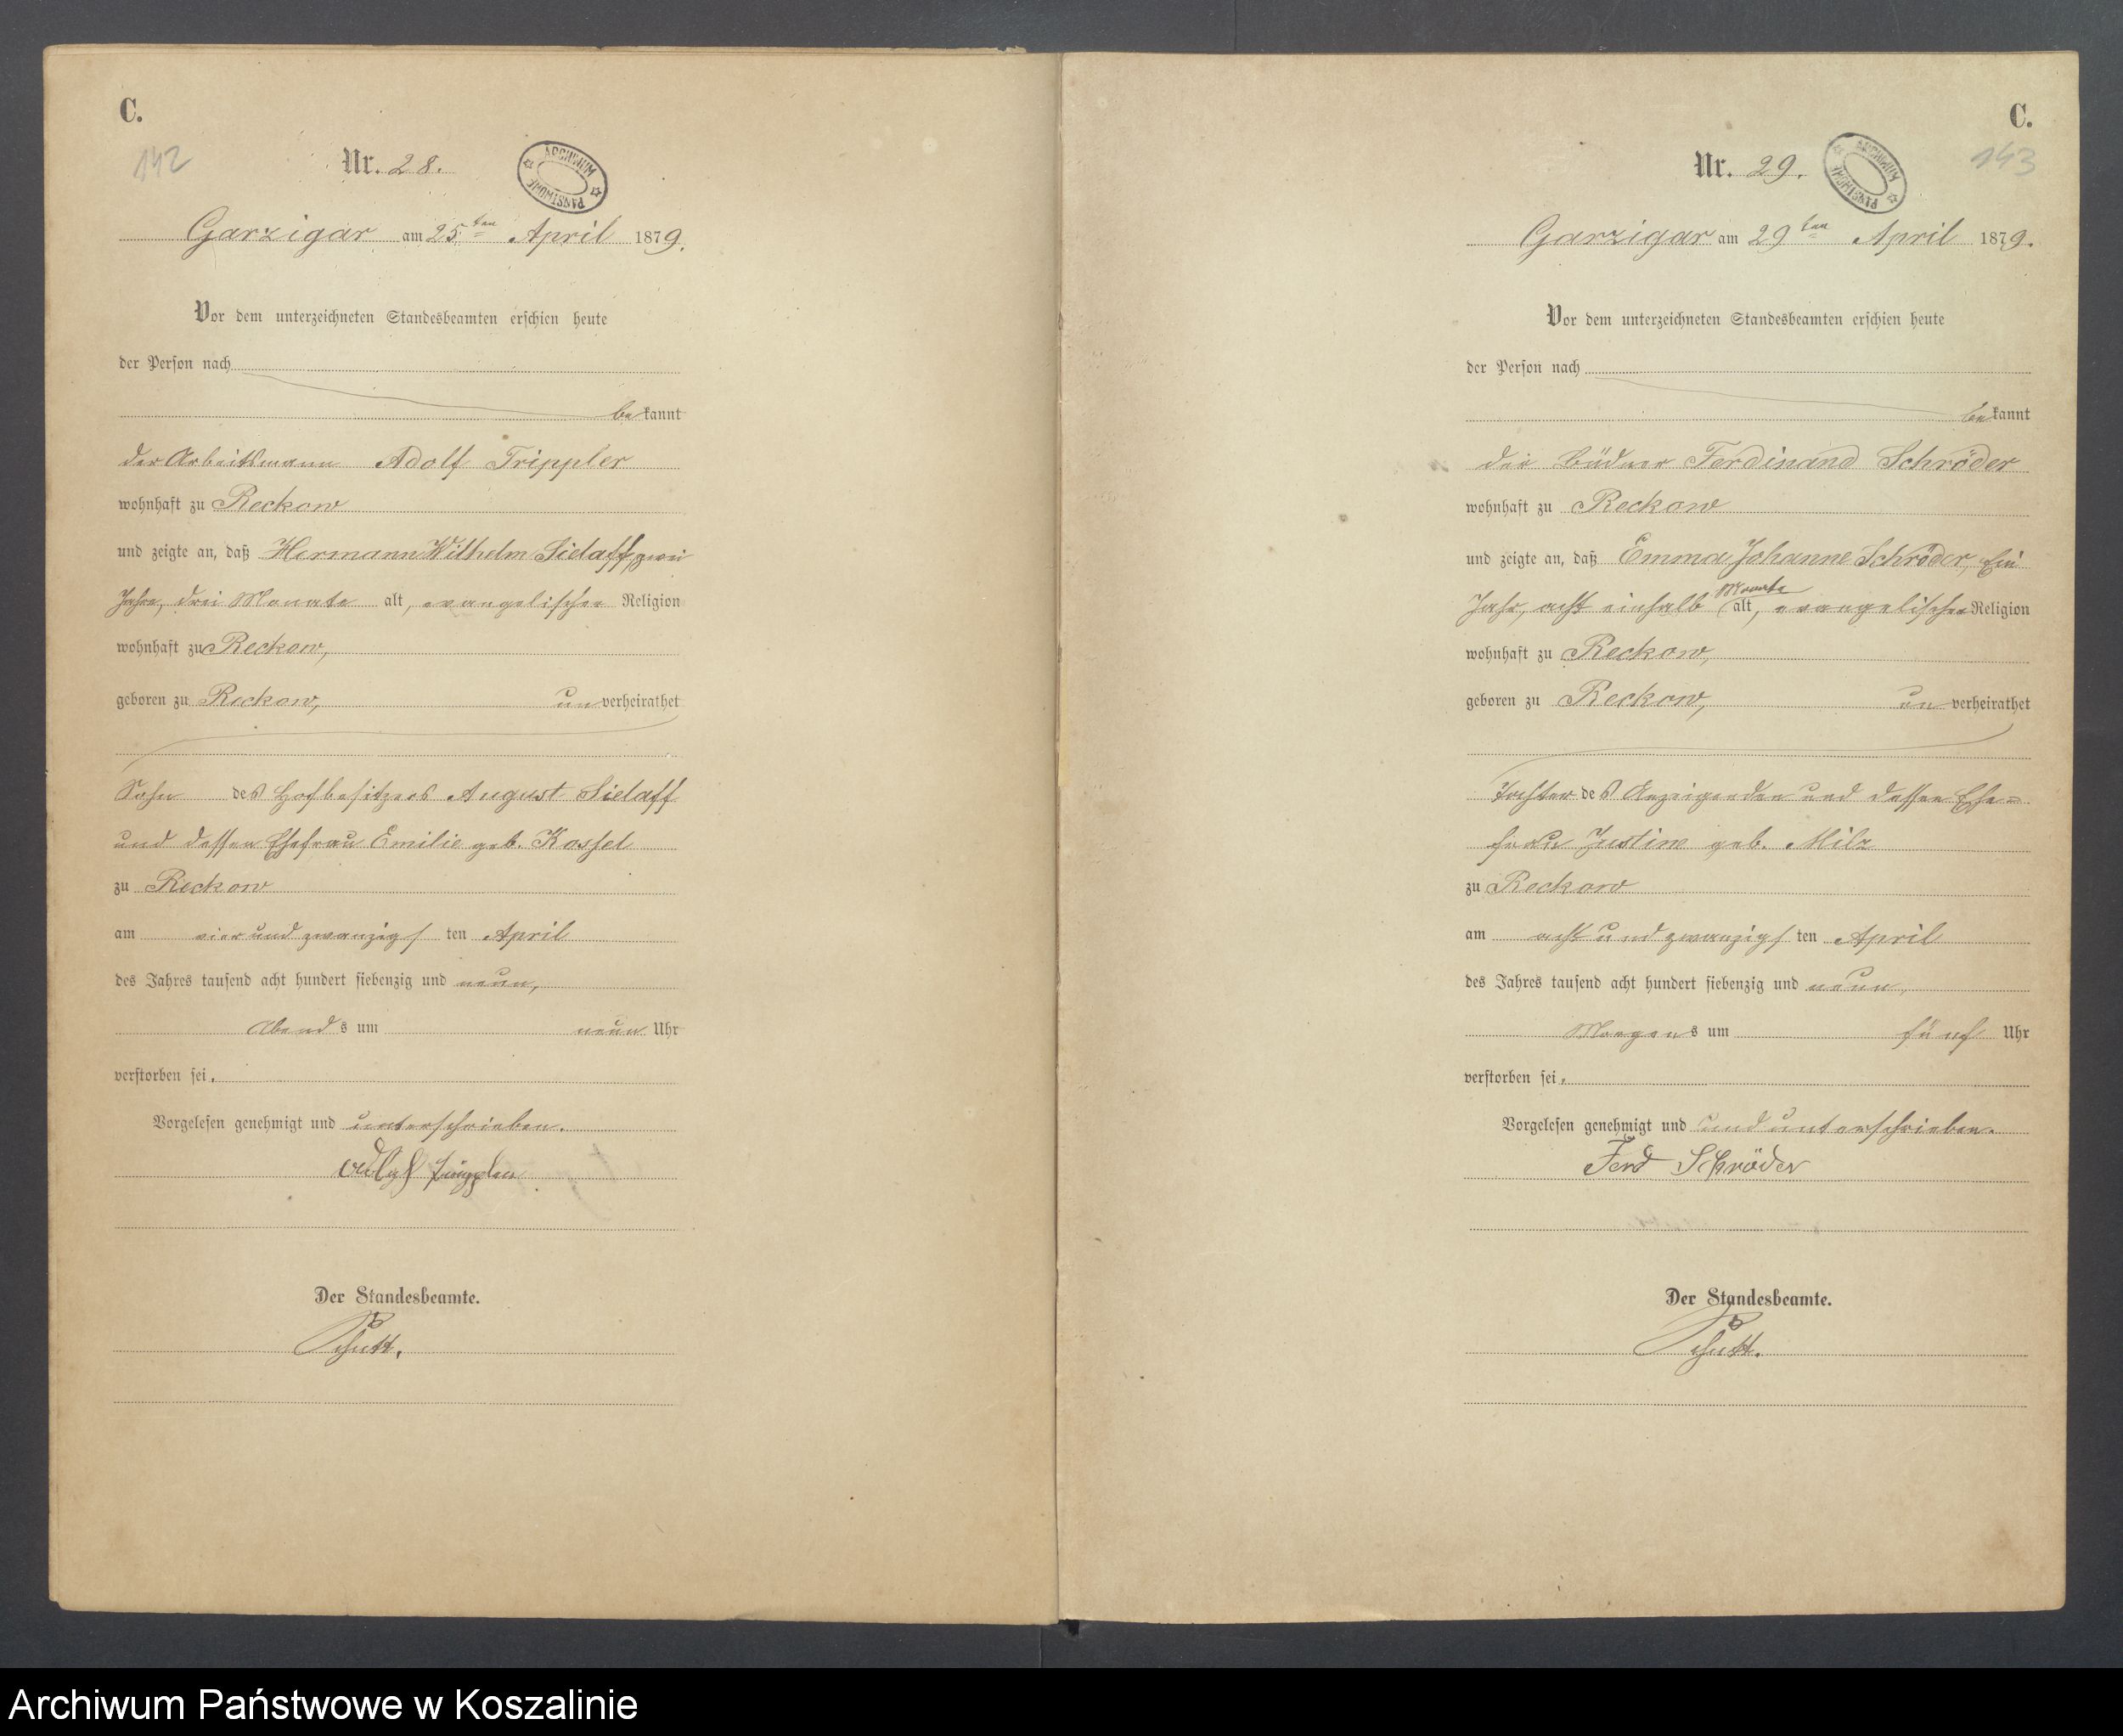 C.
142
Nr. 28.
ARCHIWUM PAŃSTWOWE
Garzigar am 25ten April 1879.
Vor dem unterzeichneten Standesbeamten erschien heute
der Person nach
bekannt
der Arbeitsmann Adolf Trippler
wohnhaft zu Reckow
und zeigte an, daß Hermann Wilhelm Sielaff, zwei
Jahre, drei Monate alt, evangelischer Religion
wohnhaft zu Reckow,
geboren zu Reckow, unverheirathet
Sohn des Hofbesitzers August Sielaff
und dessen Ehefrau Emilie geb. Kossel
zu Reckow
am vier und zwanzigsten April
des Jahres tausend acht hundert siebenzig und neun,
Abends um neun Uhr
verstorben sei.
Vorgelesen genehmigt und unterschrieben.
Adolf Trippler
Der Standesbeamte.
C.
143
Nr. 29.
ARCHIWUM PAŃSTWOWE
Garzigar am 29ten April 1879.
Vor dem unterzeichneten Standesbeamten erschien heute
der Person nach
bekannt
der Büdner Ferdinand Schröder
wohnhaft zu Reckow
und zeigte an, daß Emma Johanne Schröder, Ein
Monate
Jahr, acht einhalb alt, evangelischer Religion
wohnhaft zu Reckow,
geboren zu Reckow, unverheirathet
Tochter des Anzeigenden und dessen Ehe=
frau Justine geb. Milz
zu Reckow
am acht und zwanzigsten April
des Jahres tausend acht hundert siebenzig und neun,
Morgens um fünf Uhr
verstorben sei.
Vorgelesen genehmigt und und unterschrieben.
Ferd Schröder
Der Standesbeamte.
Archiwum Państwowe w Koszalinie